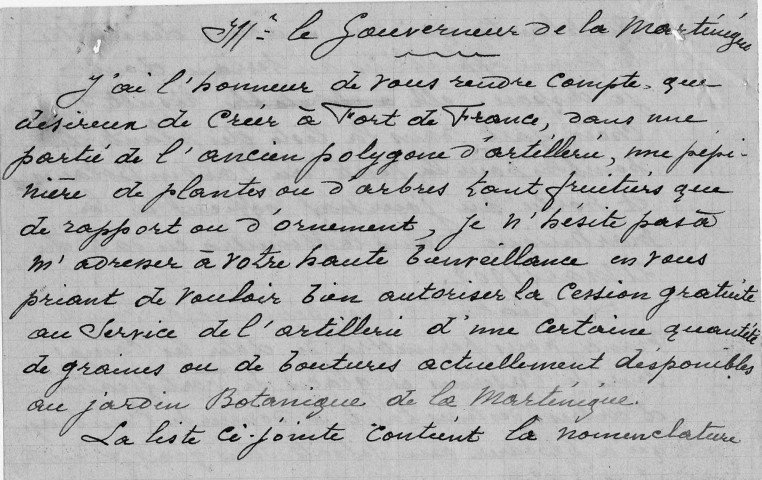 Mr le Gouverneur de la Martinique
J'ai l'honneur de vous rendre compte, que
désireux de Créer à Fort de France, dans une
partie de l'ancien polygone d'artillerie, une pépi-
nière de plantes ou d'arbres tant fruitiers que
de rapport ou d'ornement, je n'hésite pas à
m'adresser à votre haute bienveillance en vous
priant de vouloir bien autoriser la Cession gratuite
au Service de l'artillerie d'une certaine quantité
de graines ou de boutures actuellement disponibles
au jardin Botanique de la Martinique.
La liste Ci-jointe contient la nomenclature